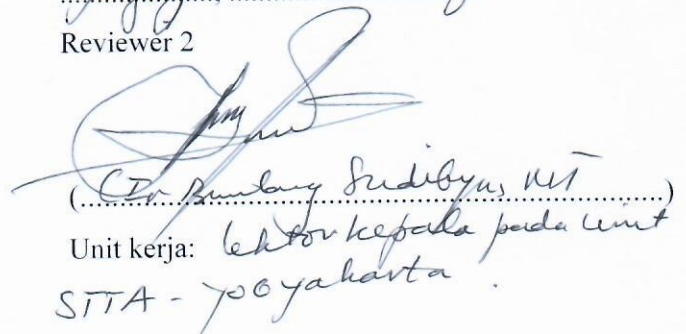 Reviewer 2
(Ir Bambang Sudibya, MT)
Unit kerja: Lektor kepala pada unit
STTA - Yogyakarta.